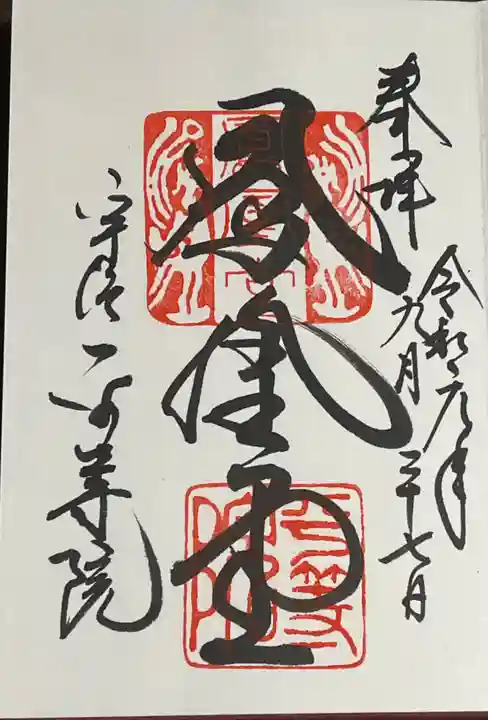 奉拝
令和元年
九月二十七日
鳳凰堂
宇治 平等院